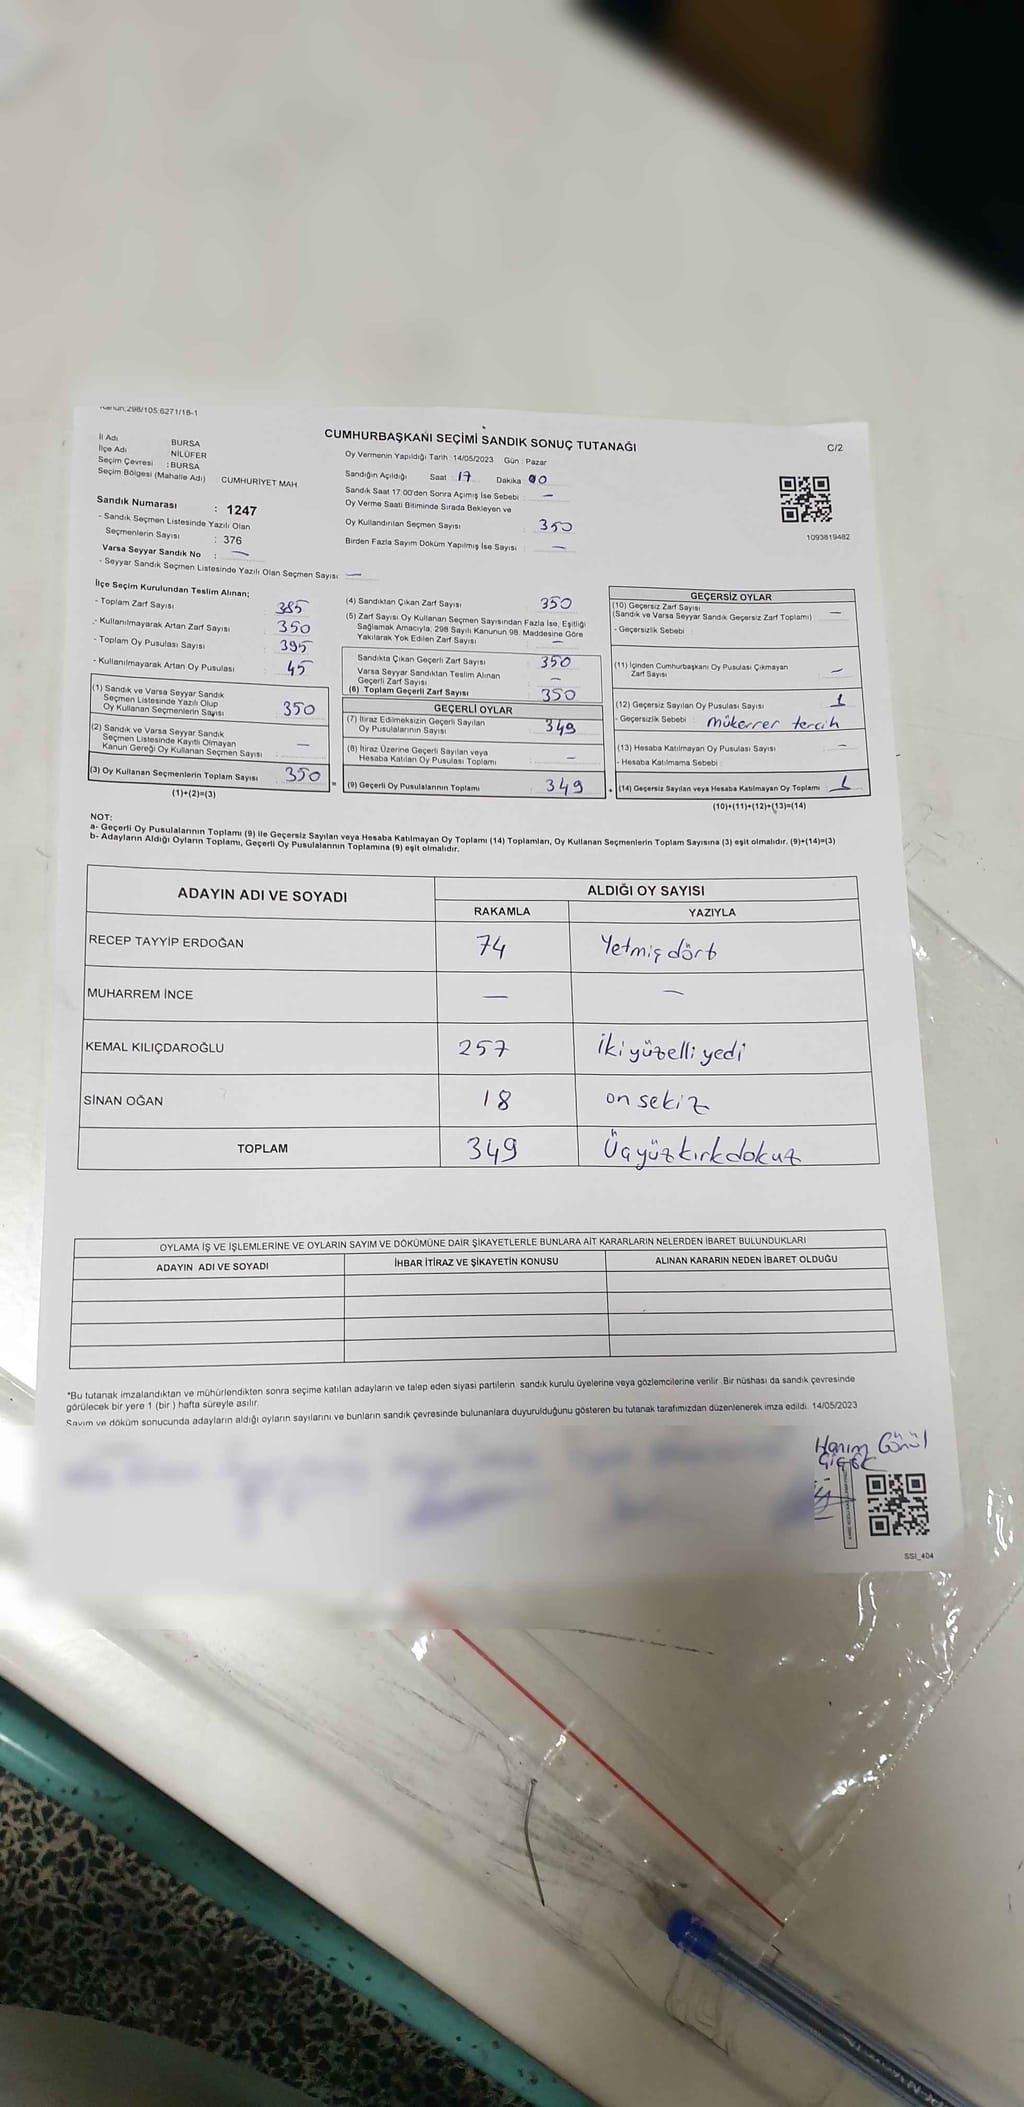 Kanun;298/105;6271/18-1
CUMHURBAŞKANI SEÇİMİ SANDIK SONUÇ TUTANAĞI
C/2
İl Adı BURSA
İlçe Adı NİLÜFER
Seçim Çevresi :BURSA
Seçim Bölgesi (Mahalle Adı) CUMHURİYET MAH.
Oy Vermenin Yapıldığı Tarih :14/05/2023 Gün : Pazar
Sandığın Açıldığı Saat 17 Dakika 00
Sandık Saat 17:00'den Sonra Açımış İse Sebebi : —
Oy Verme Saati Bitiminde Sırada Bekleyen ve
Oy Kullandırılan Seçmen Sayısı 350
Birden Fazla Sayım Döküm Yapılmış İse Sayısı : —
1093819482
Sandık Numarası : 1247
- Sandık Seçmen Listesinde Yazılı Olan
Seçmenlerin Sayısı : 376
Varsa Seyyar Sandık No : —
- Seyyar Sandık Seçmen Listesinde Yazılı Olan Seçmen Sayısı —
İlçe Seçim Kurulundan Teslim Alınan;
- Toplam Zarf Sayısı 385
- Kullanılmayarak Artan Zarf Sayısı 350
- Toplam Oy Pusulası Sayısı 395
- Kullanılmayarak Artan Oy Pusulası 45
(1) Sandık ve Varsa Seyyar Sandık
Seçmen Listesinde Yazılı Olup
Oy Kullanan Seçmenlerin Sayısı 350
(2) Sandık ve Varsa Seyyar Sandık
Seçmen Listesinde Kayıtlı Olmayan
Kanun Gereği Oy Kullanan Seçmen Sayısı —
(3) Oy Kullanan Seçmenlerin Toplam Sayısı 350
(1)+(2)=(3)
(4) Sandıktan Çıkan Zarf Sayısı 350
(5) Zarf Sayısı Oy Kullanan Seçmen Sayısından Fazla İse, Eşitliği
Sağlamak Amacıyla, 298 Sayılı Kanunun 98. Maddesine Göre
Yakılarak Yok Edilen Zarf Sayısı —
Sandıkta Çıkan Geçerli Zarf Sayısı 350
Varsa Seyyar Sandıktan Teslim Alınan
Geçerli Zarf Sayısı —
(6) Toplam Geçerli Zarf Sayısı 350
GEÇERLİ OYLAR
(7) İtiraz Edilmeksizin Geçerli Sayılan
Oy Pusulalarının Sayısı 349
(8) İtiraz Üzerine Geçerli Sayılan veya
Hesaba Katılan Oy Pusulası Toplamı —
= (9) Geçerli Oy Pusulalarının Toplamı 349
GEÇERSİZ OYLAR
(10) Geçersiz Zarf Sayısı —
(Sandık ve Varsa Seyyar Sandık Geçersiz Zarf Toplamı)
- Geçersizlik Sebebi :
(11) İçinden Cumhurbaşkanı Oy Pusulası Çıkmayan
Zarf Sayısı —
(12) Geçersiz Sayılan Oy Pusulası Sayısı 1
- Geçersizlik Sebebi : mükerrer tercih
(13) Hesaba Katılmayan Oy Pusulası Sayısı —
- Hesaba Katılmama Sebebi :
+ (14) Geçersiz Sayılan veya Hesaba Katılmayan Oy Toplamı 1
(10)+(11)+(12)+(13)=(14)
NOT:
a- Geçerli Oy Pusulalarının Toplamı (9) ile Geçersiz Sayılan veya Hesaba Katılmayan Oy Toplamı (14) Toplamları, Oy Kullanan Seçmenlerin Toplam Sayısına (3) eşit olmalıdır. (9)+(14)=(3)
b- Adayların Aldığı Oyların Toplamı, Geçerli Oy Pusulalarının Toplamına (9) eşit olmalıdır.
ADAYIN ADI VE SOYADI ALDIĞI OY SAYISI
RAKAMLA YAZIYLA
RECEP TAYYİP ERDOĞAN 74 Yetmiş dört
MUHARREM İNCE — —
KEMAL KILIÇDAROĞLU 257 İki yüzelli yedi
SİNAN OĞAN 18 on sekiz
TOPLAM 349 Üçyüzkırkdokuz
OYLAMA İŞ VE İŞLEMLERİNE VE OYLARIN SAYIM VE DÖKÜMÜNE DAİR ŞİKAYETLERLE BUNLARA AİT KARARLARIN NELERDEN İBARET BULUNDUKLARI
ADAYIN ADI VE SOYADI İHBAR İTİRAZ VE ŞİKAYETİN KONUSU ALINAN KARARIN NEDEN İBARET OLDUĞU
*Bu tutanak imzalandıktan ve mühürlendikten sonra seçime katılan adayların ve talep eden siyasi partilerin sandık kurulu üyelerine veya gözlemcilerine verilir .Bir nüshası da sandık çevresinde
görülecek bir yere 1 (bir ) hafta süreyle asılır.
Sayım ve döküm sonucunda adayların aldığı oyların sayılarını ve bunların sandık çevresinde bulunanlara duyurulduğunu gösteren bu tutanak tarafımızdan düzenlenerek imza edildi. 14/05/2023
Hanım Gönül
Çiçek
SSI_404